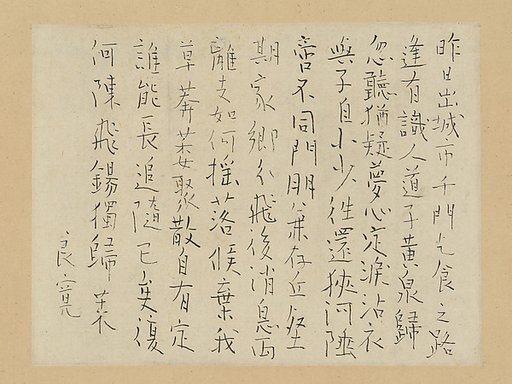 昨日出城市千門乞食之路
逢有識人道子黄泉歸
忽聽猶疑夢心定涙沾衣
與子自小少往還狹河陲
啻不同門朋兼存丘壑
期家郷分飛後消息両
離如何揺落候棄我
草莽聚散自有定
誰能長追随已矣復
何陳飛錫獨歸来
良寛